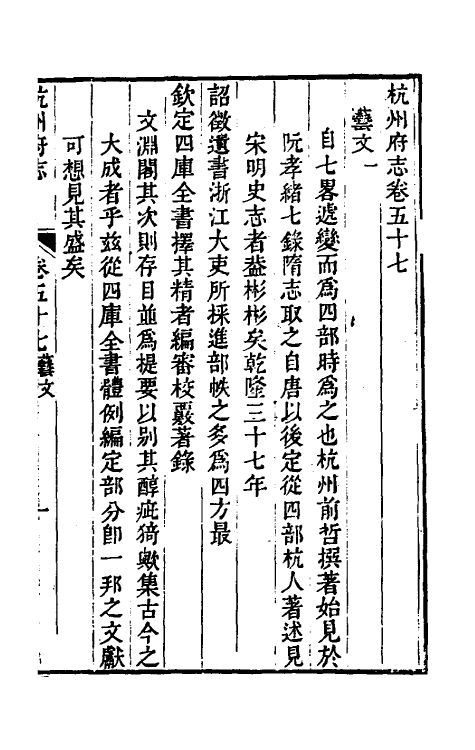 杭州府志卷五十七
藝文一
自七畧遞變而爲四部時爲之也杭州前哲撰著始見於
阮孝緒七錄隋志取之自唐以後定從四部杭人著述見
宋明史志者葢彬彬矣乾隆三十七年
詔徵遺書浙江大吏所採進部帙之多爲四方最
欽定四庫全書擇其精者編審校覈著錄
文淵閣其次則存目並爲提要以别其醇疵猗歟集古今之
大成者乎茲從四庫全書體例編定部分卽一邦之文獻
可想見其盛矣
杭州府志
卷五十七藝文
一